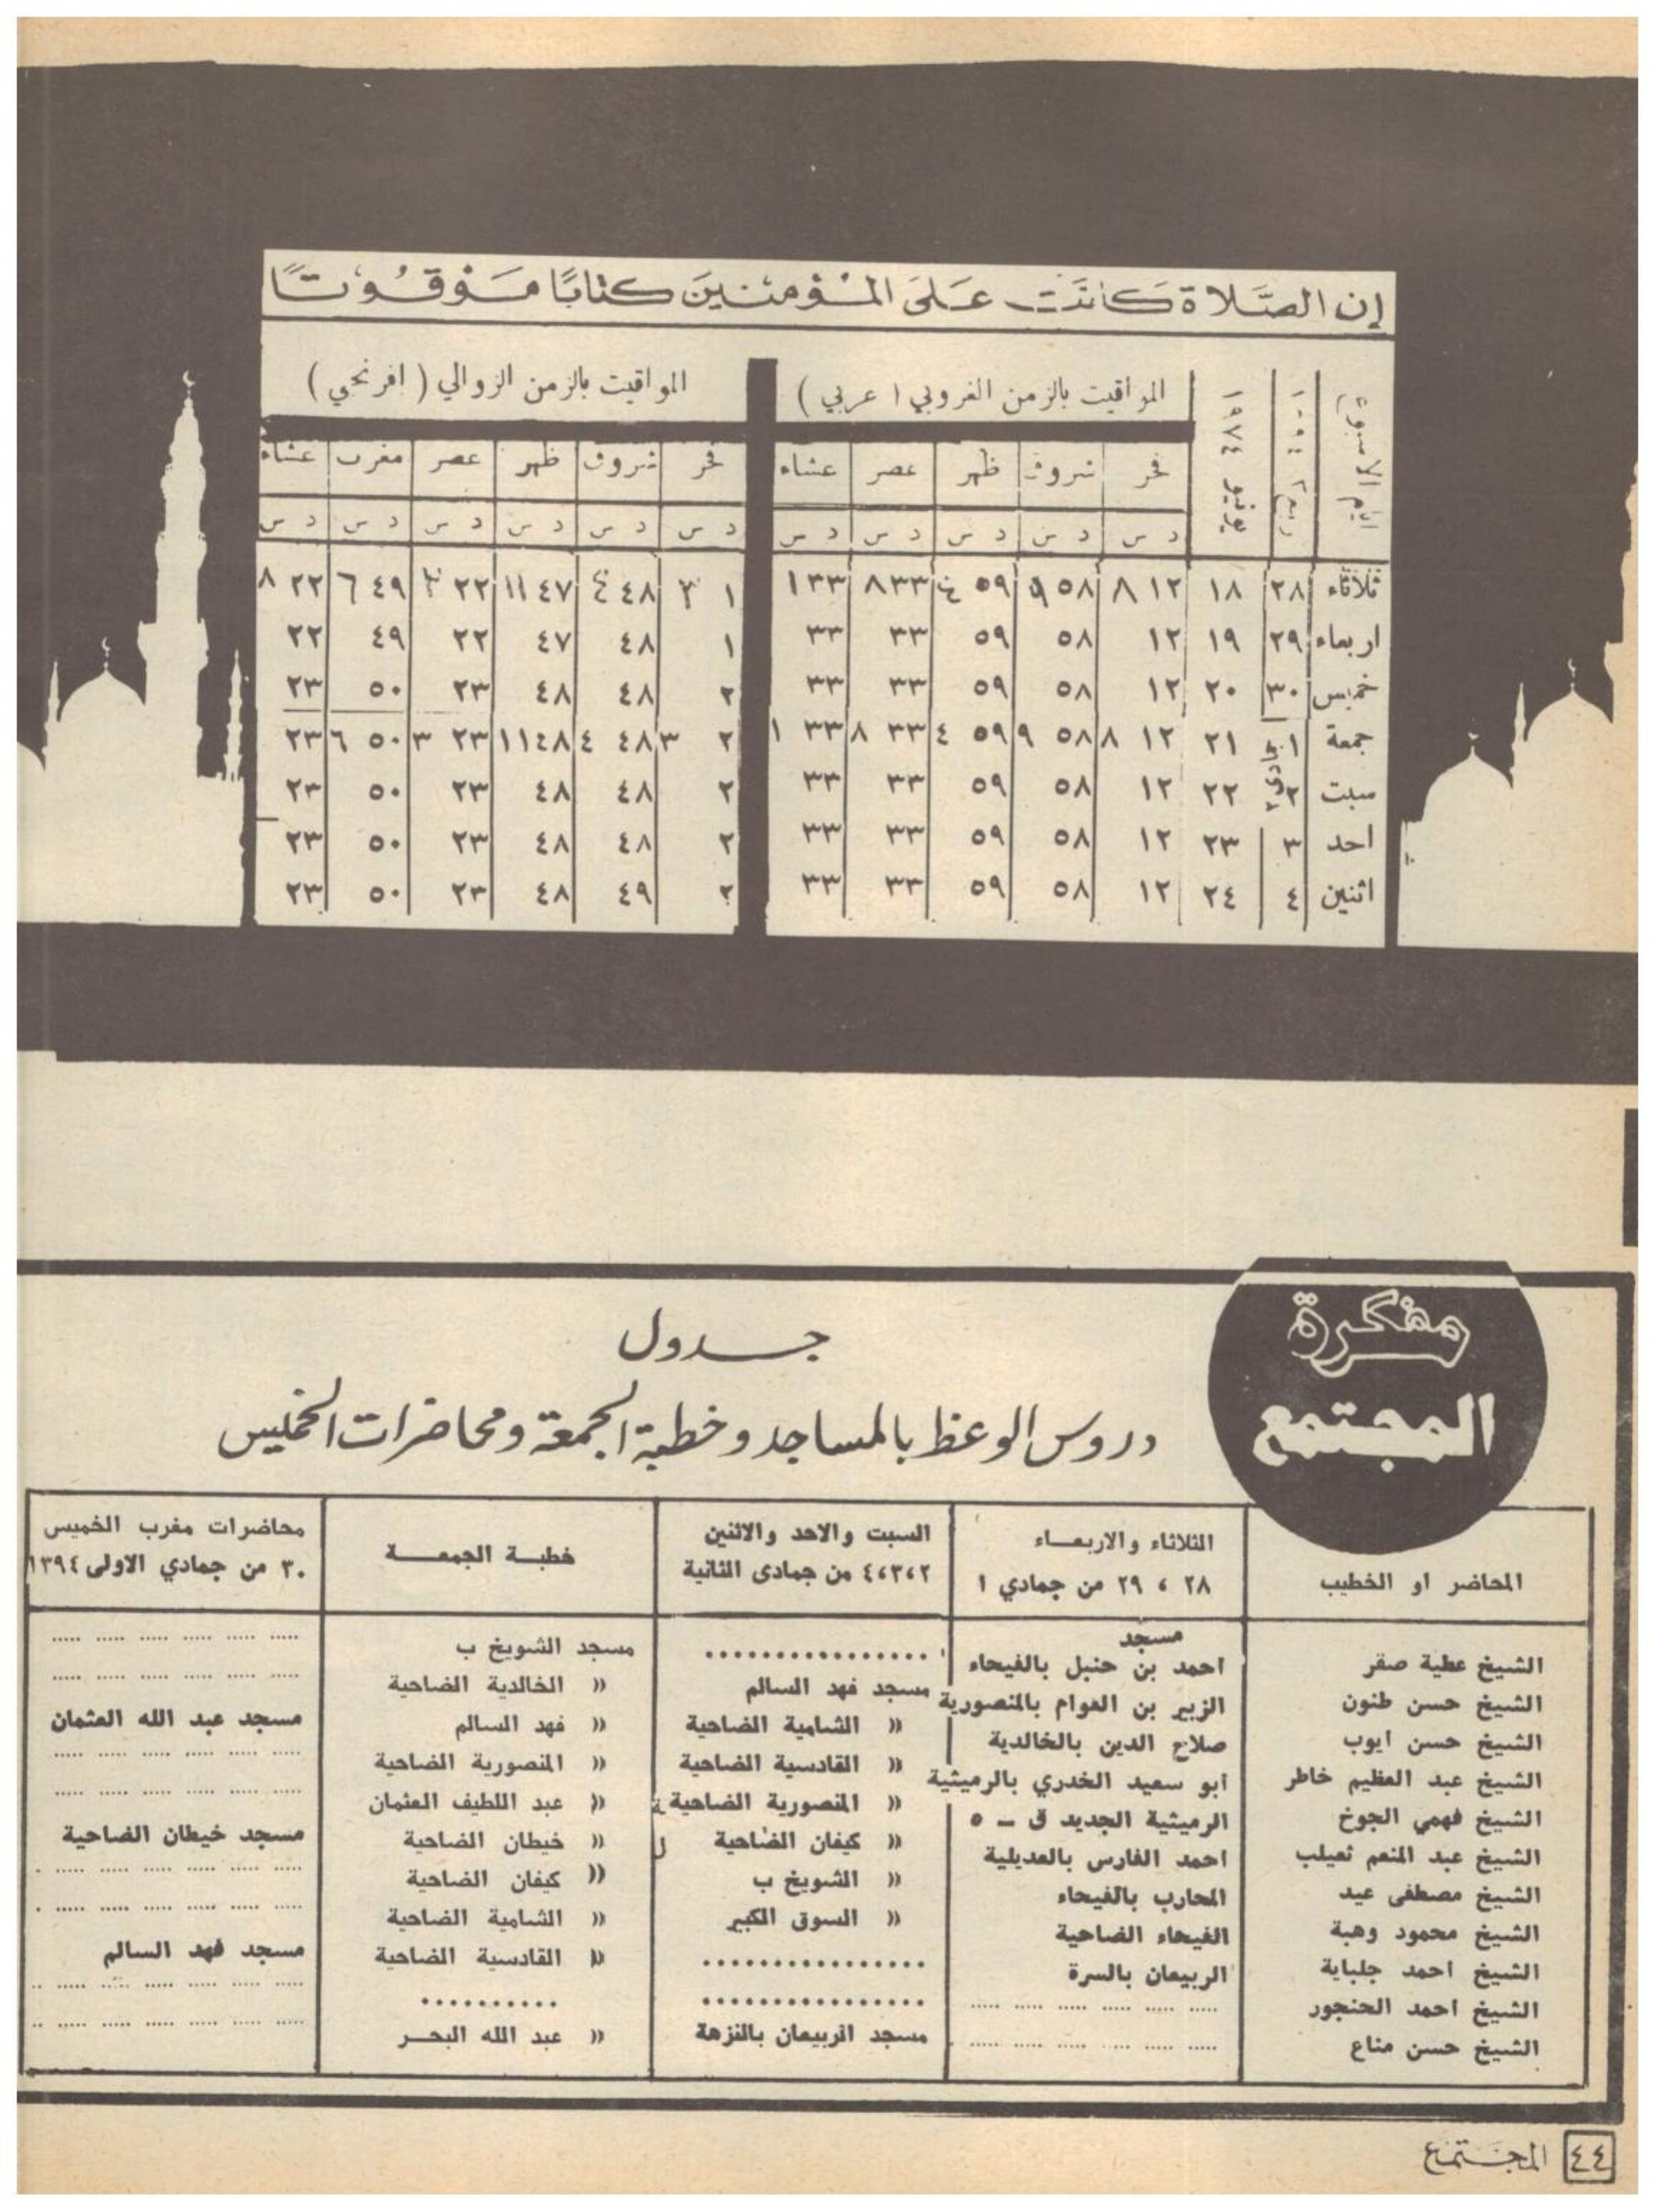 إن الصَّلاة كَانَت عَلى المُؤمنينَ كتابًا مَوقُوتًا
المواقيت بالزمن الغروبي ( عربي )
المواقيت بالزمن الزوالي ( افرنجي )
ايام الاسبوع
يونيو ١٩٧٤
فجر شروق ظهر عصر عشاء فجر شروق ظهر عصر مغرب عشاء
د س د س د س د س د س د س د س د س د س د س د س
ثلاثاء ٢٨ ١٨ ١٢ ٨ ٥٨ ٩ ٥٩ ٤ ٣٣ ٨ ٣٣ ١ ١ ٣ ٤٨ ٤ ٤٧ ١١ ٢٢ ٣ ٤٩ ٦ ٢٢ ٨
اربعاء ٢٩ ١٩ ١٢ ٥٨ ٥٩ ٣٣ ٣٣ ١ ٤٨ ٤٧ ٢٢ ٤٩ ٢٢
خميس ٣٠ ٢٠ ١٢ ٥٨ ٥٩ ٣٣ ٣٣ ٢ ٤٨ ٤٨ ٢٣ ٥٠ ٢٣
جمعة ١ ٢١ ١٢ ٨ ٥٨ ٩ ٥٩ ٤ ٣٣ ٨ ٣٣ ١ ٢ ٣ ٤٨ ٤ ٤٨ ١١ ٢٣ ٣ ٥٠ ٦ ٢٣
سبت ٢ ٢٢ ١٢ ٥٨ ٥٩ ٣٣ ٣٣ ٢ ٤٨ ٤٨ ٢٣ ٥٠ ٢٣
احد ٣ ٢٣ ١٢ ٥٨ ٥٩ ٣٣ ٣٣ ٢ ٤٨ ٤٨ ٢٣ ٥٠ ٢٣
اثنين ٤ ٢٤ ١٢ ٥٨ ٥٩ ٣٣ ٣٣ ٢ ٤٩ ٤٨ ٢٣ ٥٠ ٢٣
مفكرة
المجتمع
جدول
دروس الوعظ بالمساجد وخطبة الجمعة ومحاضرات الخميس
المحاضر او الخطيب
الثلاثاء والاربعاء
٢٨ ، ٢٩ من جمادي ١
السبت والاحد والاثنين
٢،٣،٤ من جمادى الثانية
خطبة الجمعة
محاضرات مغرب الخميس
٣٠ من جمادي الاولى ١٣٩٤
مسجد
الشيخ عطية صقر احمد بن حنبل بالفيحاء ................ مسجد الشويخ ب ..... ..... ..... ..... ..... .....
الشيخ حسن طنون الزبير بن العوام بالمنصورية مسجد فهد السالم » الخالدية الضاحية ..... ..... ..... ..... ..... .....
الشيخ حسن ايوب صلاح الدين بالخالدية » الشامية الضاحية » فهد السالم مسجد عبد الله العثمان
الشيخ عبد العظيم خاطر ابو سعيد الخدري بالرميثية » القادسية الضاحية » المنصورية الضاحية ..... ..... ..... ..... ..... .....
الشيخ فهمي الجوخ الرميثية الجديد ق ــ ٥ » المنصورية الضاحية » عبد اللطيف العثمان ..... ..... ..... ..... ..... .....
الشيخ عبد المنعم تعيلب احمد الفارس بالعديلية » كيفان الضاحية » خيطان الضاحية مسجد خيطان الضاحية
الشيخ مصطفى عيد المحارب بالفيحاء » الشويخ ب » كيفان الضاحية ..... ..... ..... ..... ..... .....
الشيخ محمود وهبة الفيحاء الضاحية » السوق الكبير » الشامية الضاحية ..... ..... ..... ..... ..... .....
الشيخ احمد جلباية الربيعان بالسرة ................ » القادسية الضاحية مسجد فهد السالم
الشيخ احمد الحنجور ..... ..... ..... ..... ..... ..... ................ .......... ..... ..... ..... ..... ..... .....
الشيخ حسن مناع ..... ..... ..... ..... ..... ..... مسجد الربيعان بالنزهة » عبد الله البحر ..... ..... ..... ..... ..... .....
٤٤ المجتمع